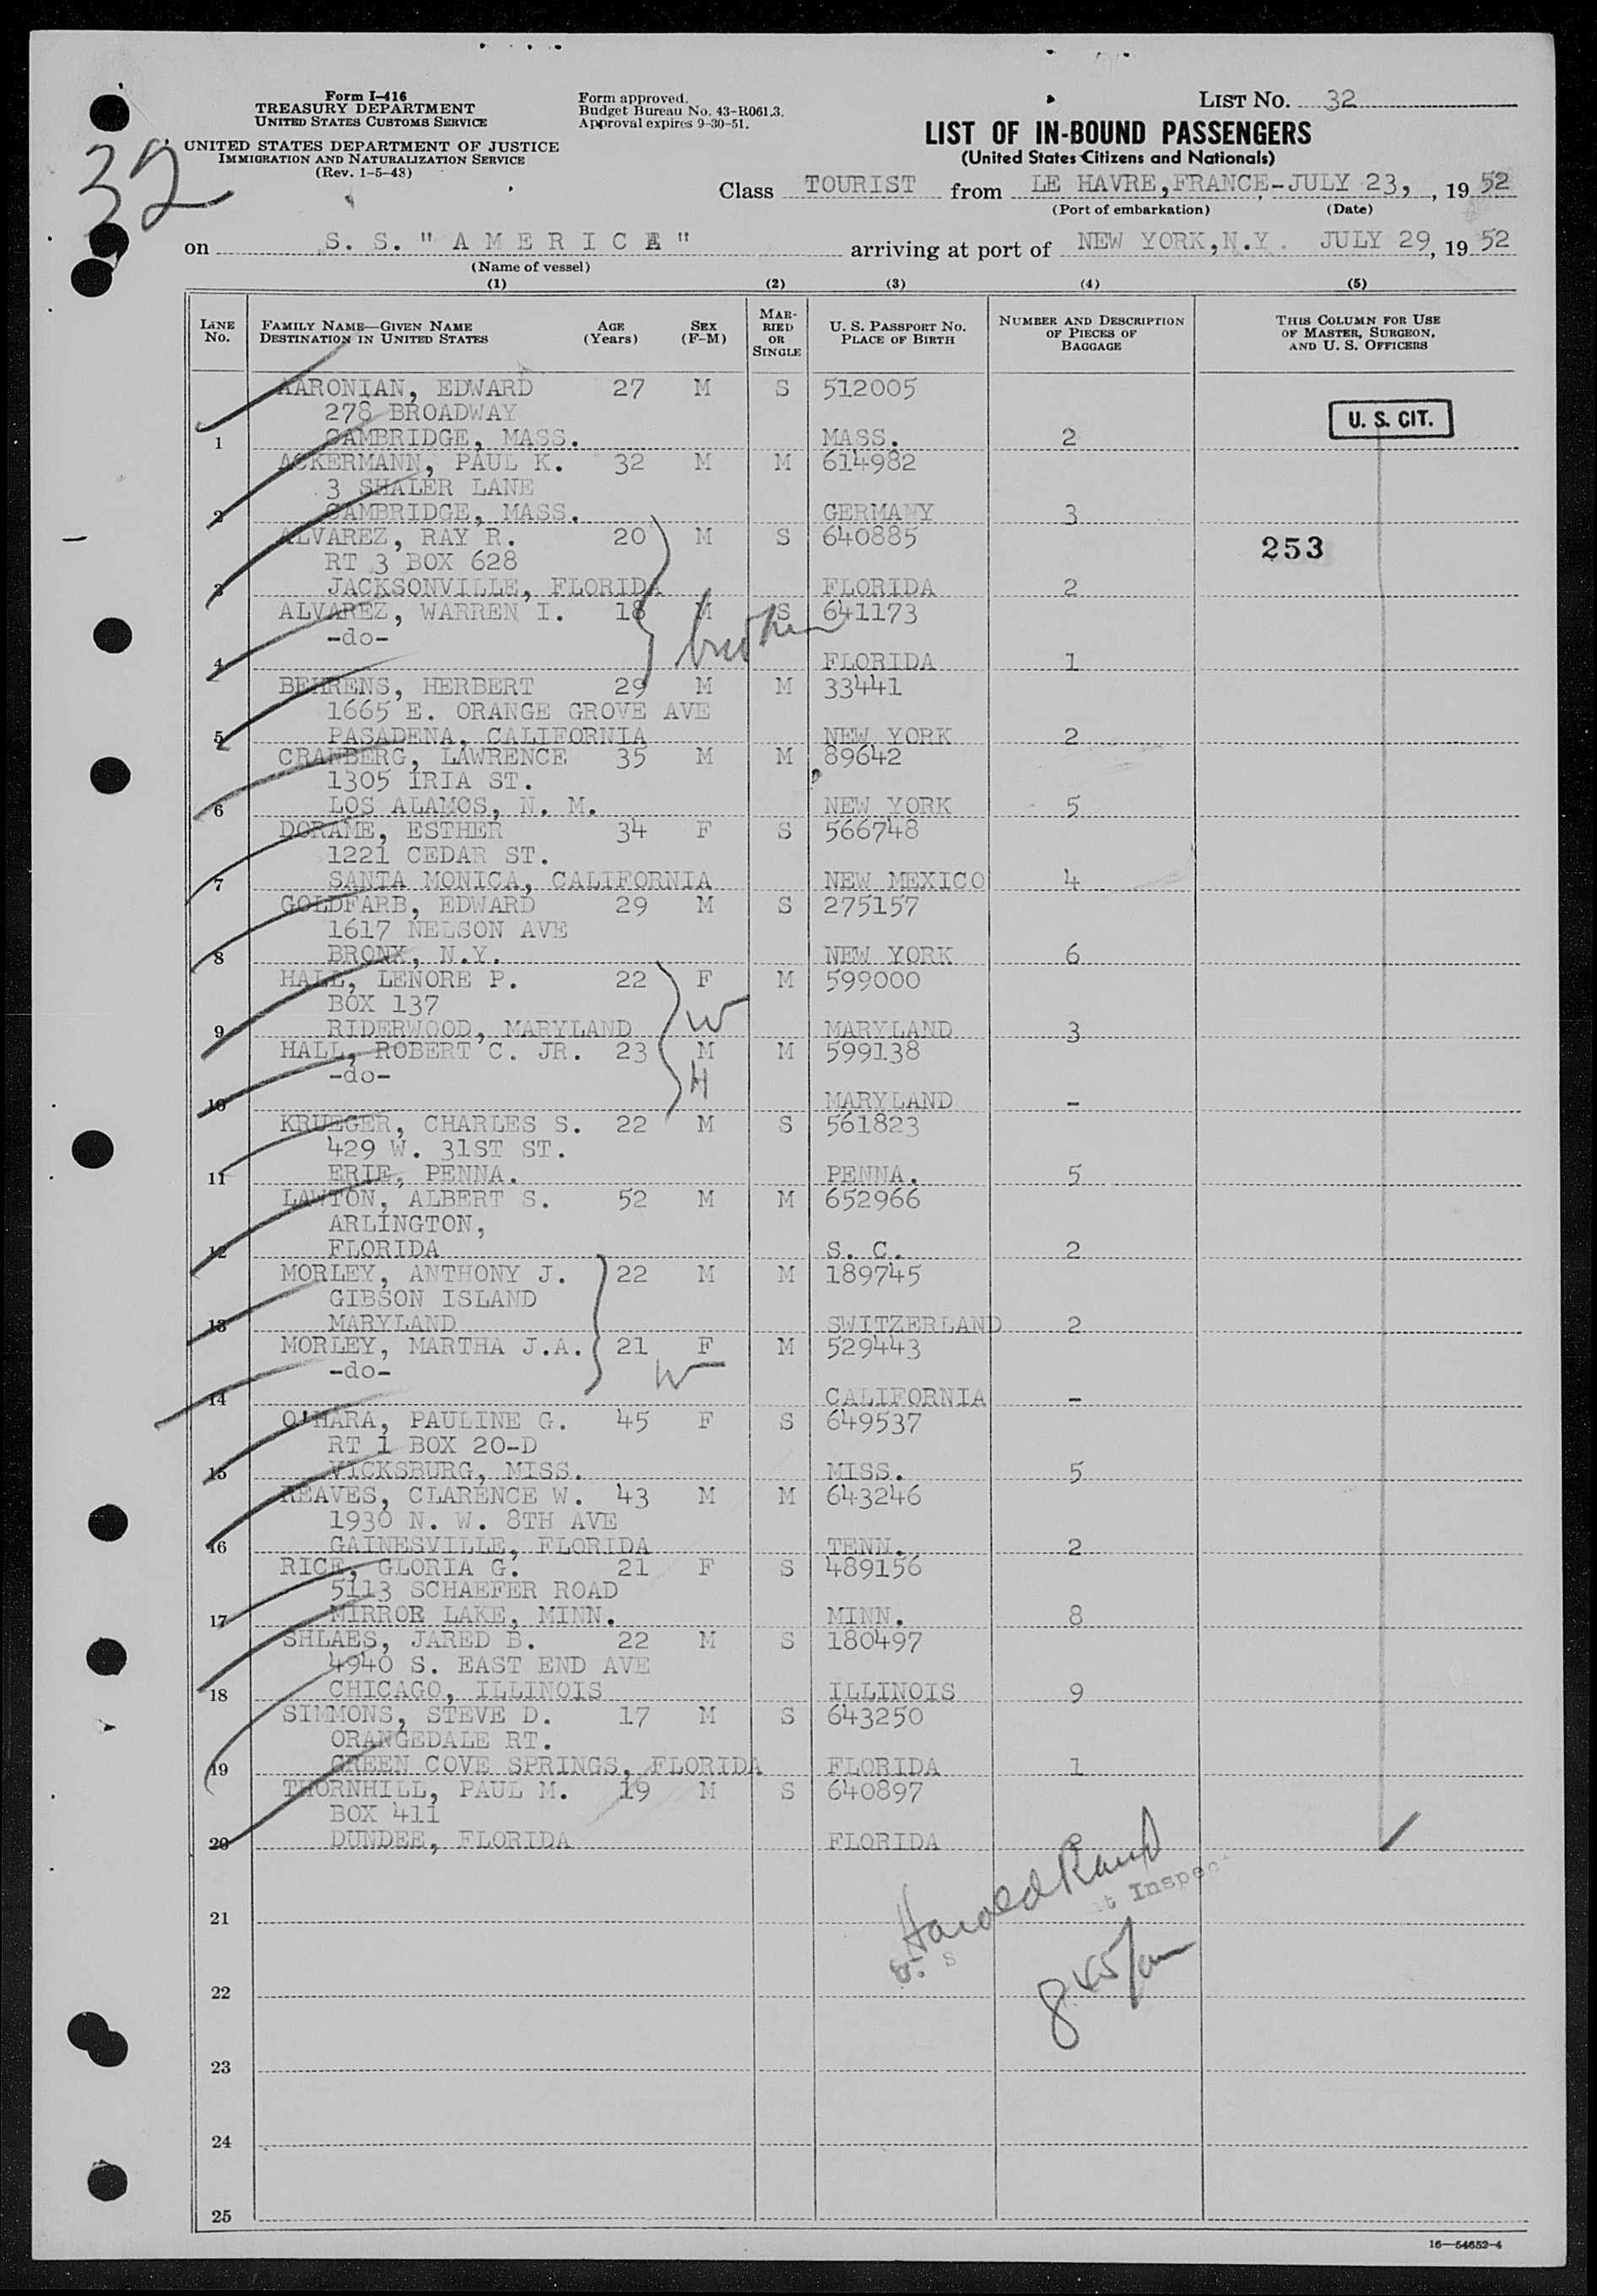 Form I-416
TREASURY DEPARTMENT
UNITED STATES CUSTOMS SERVICE
UNITED STATES DEPARTMENT OF JUSTICE
IMMIGRATION AND NATURALIZATION SERVICE
(Rev. 1-5-48)
32
Form approved.
Budget Bureau No. 43-R061.3.
Approval expires 9-30-51.
LIST NO. 32
LIST OF IN-BOUND PASSENGERS
(United States Citizens and Nationals)
Class TOURIST from LE HAVRE, FRANCE-JULY 23, , 19 52
(Port of embarkation) (Date)
on S. S. "A M E R I C A" arriving at port of NEW YORK, N.Y. JULY 29, 19 52
(Name of vessel)
(1) (2) (3) (4) (5)
LINE No. FAMILY NAME—GIVEN NAME DESTINATION IN UNITED STATES AGE (Years) SEX (F-M) MARRIED OR SINGLE U. S. PASSPORT NO. PLACE OF BIRTH NUMBER AND DESCRIPTION OF PIECES OF BAGGAGE THIS COLUMN FOR USE OF MASTER, SURGEON, AND U. S. OFFICERS
AARONIAN, EDWARD 27 M S 512005
278 BROADWAY U. S. CIT.
1 CAMBRIDGE, MASS. MASS. 2
ACKERMANN, PAUL K. 32 M M 614982
3 SHALER LANE
2 CAMBRIDGE, MASS. GERMANY 3
ALVAREZ, RAY R. 20 M S 640885 253
RT 3 BOX 628
3 JACKSONVILLE, FLORIDA FLORIDA 2
ALVAREZ, WARREN I. 18 M S 641173
-do- brother
4 FLORIDA 1
BEHRENS, HERBERT 29 M M 33441
1665 E. ORANGE GROVE AVE
5 PASADENA, CALIFORNIA NEW YORK 2
CRANBERG, LAWRENCE 35 M M 89642
1305 IRIA ST.
6 LOS ALAMOS, N. M. NEW YORK 5
DORAME, ESTHER 34 F S 566748
1221 CEDAR ST.
7 SANTA MONICA, CALIFORNIA NEW MEXICO 4
GOLDFARB, EDWARD 29 M S 275157
1617 NELSON AVE
8 BRONX, N.Y. NEW YORK 6
HALL, LENORE P. 22 F M 599000
BOX 137 W
9 RIDERWOOD, MARYLAND MARYLAND 3
HALL, ROBERT C. JR. 23 M M 599138
-do- H
10 MARYLAND -
KRUEGER, CHARLES S. 22 M S 561823
429 W. 31ST ST.
11 ERIE, PENNA. PENNA. 5
LAWTON, ALBERT S. 52 M M 652966
ARLINGTON,
12 FLORIDA S. C. 2
MORLEY, ANTHONY J. 22 M M 189745
GIBSON ISLAND
13 MARYLAND SWITZERLAND 2
MORLEY, MARTHA J.A. 21 F M 529443
-do- W
14 CALIFORNIA -
O'HARA, PAULINE G. 45 F S 649537
RT 1 BOX 20-D
15 VICKSBURG, MISS. MISS. 5
REAVES, CLARENCE W. 43 M M 643246
1930 N. W. 8TH AVE
16 GAINESVILLE, FLORIDA TENN. 2
RICE, GLORIA G. 21 F S 489156
5113 SCHAEFER ROAD
17 MIRROR LAKE, MINN. MINN. 8
SHLAES, JARED B. 22 M S 180497
4940 S. EAST END AVE
18 CHICAGO, ILLINOIS ILLINOIS 9
SIMMONS, STEVE D. 17 M S 643250
ORANGEDALE RT.
19 GREEN COVE SPRINGS, FLORIDA FLORIDA 1
THORNHILL, PAUL M. 19 M S 640897
BOX 411
20 DUNDEE, FLORIDA FLORIDA
Harold Rand
21
22
23
24
25
16—54652-4